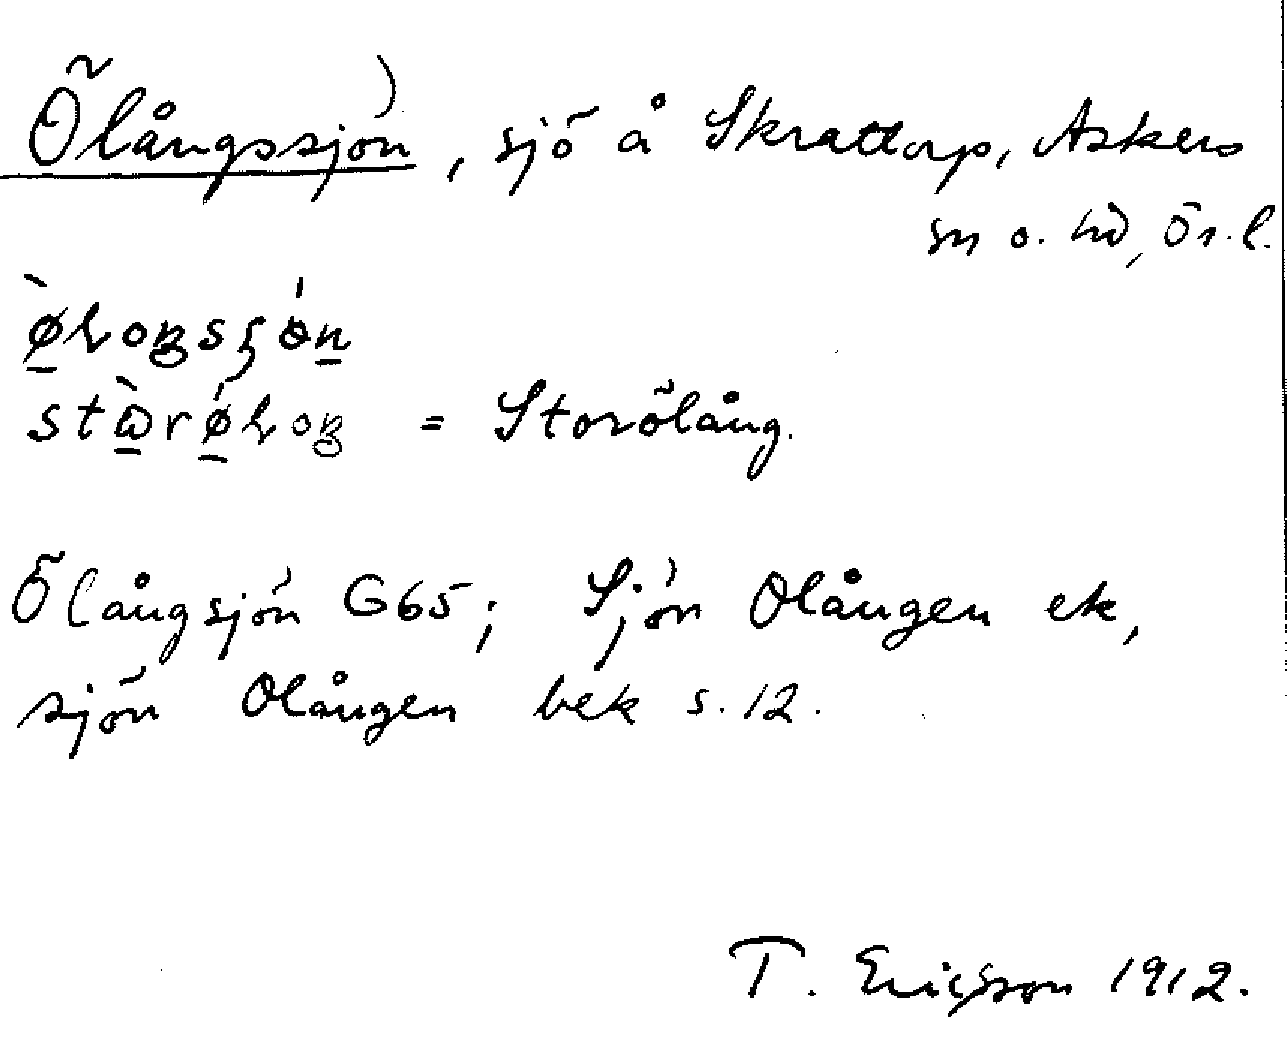 Ölångssjön, sjö å Skrattorp, Askers
sn o. hd, Ör. l.
stωrøloŋ = Storölång.
Ölångsjön G65; Sjön Olången ek,
sjön Olången bek s. 12.
T. Ericsson 1912.